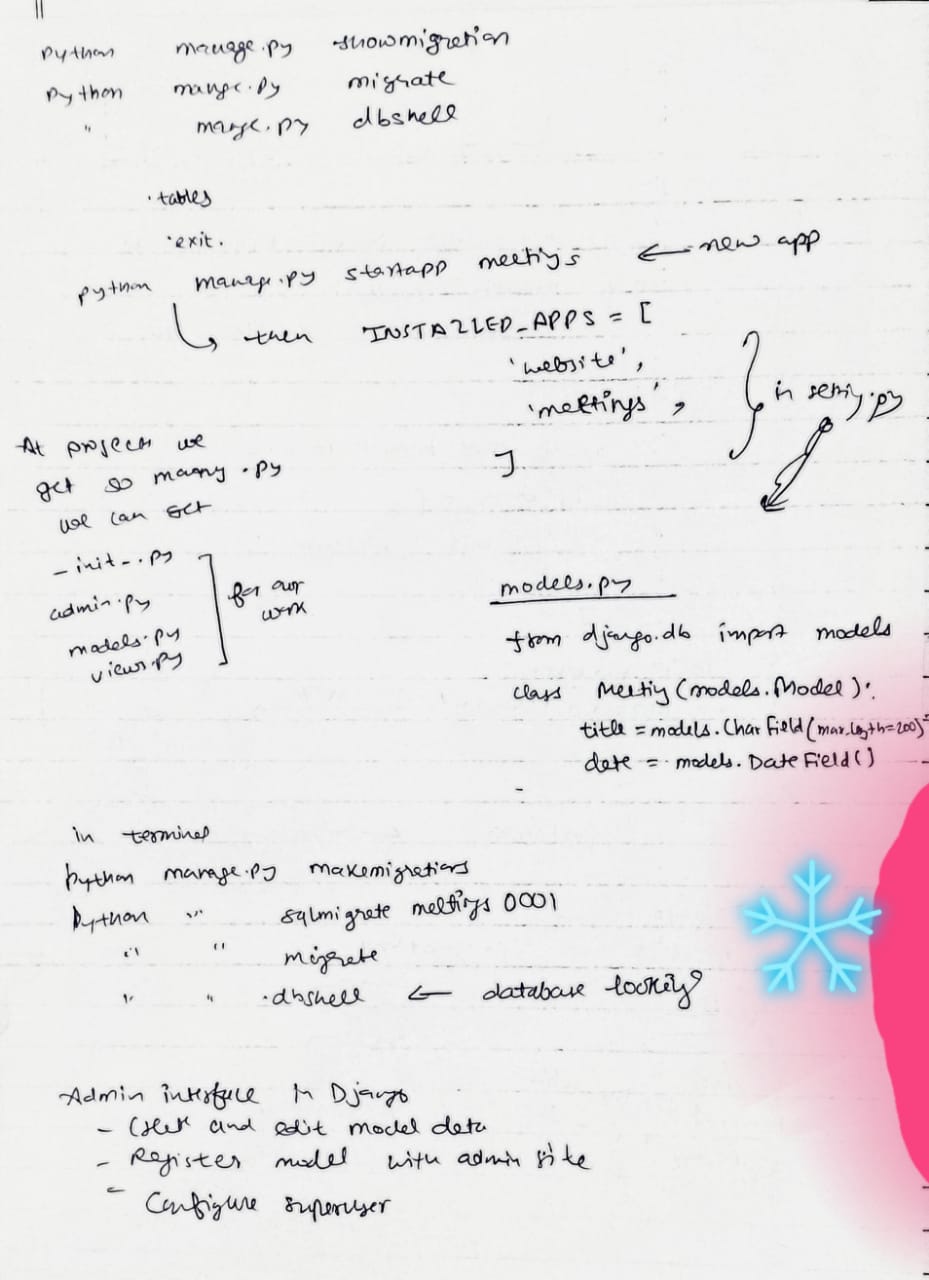 python manage.py showmigration
python manage.py migrate
" manage.py dbshell
.tables
.exit.
python manage.py startapp meetings ← new app
then INSTALLED_APPS = [
'website',
'meetings',
]
in setting.py
At project we
get so many .py
we can get
_init_.py
admin.py
models.py
views.py
for our
work
models.py
from django.db import models
class Meeting(models.Model):
title = models.CharField(max_length=200)
date = models.DateField()
in terminal
python manage.py makemigrations
python " sqlmigrate meetings 0001
" " migrate
" " .dbshell ← database looking
Admin interface in Django
- and edit model data
- Register model with admin site
- Configure superuser